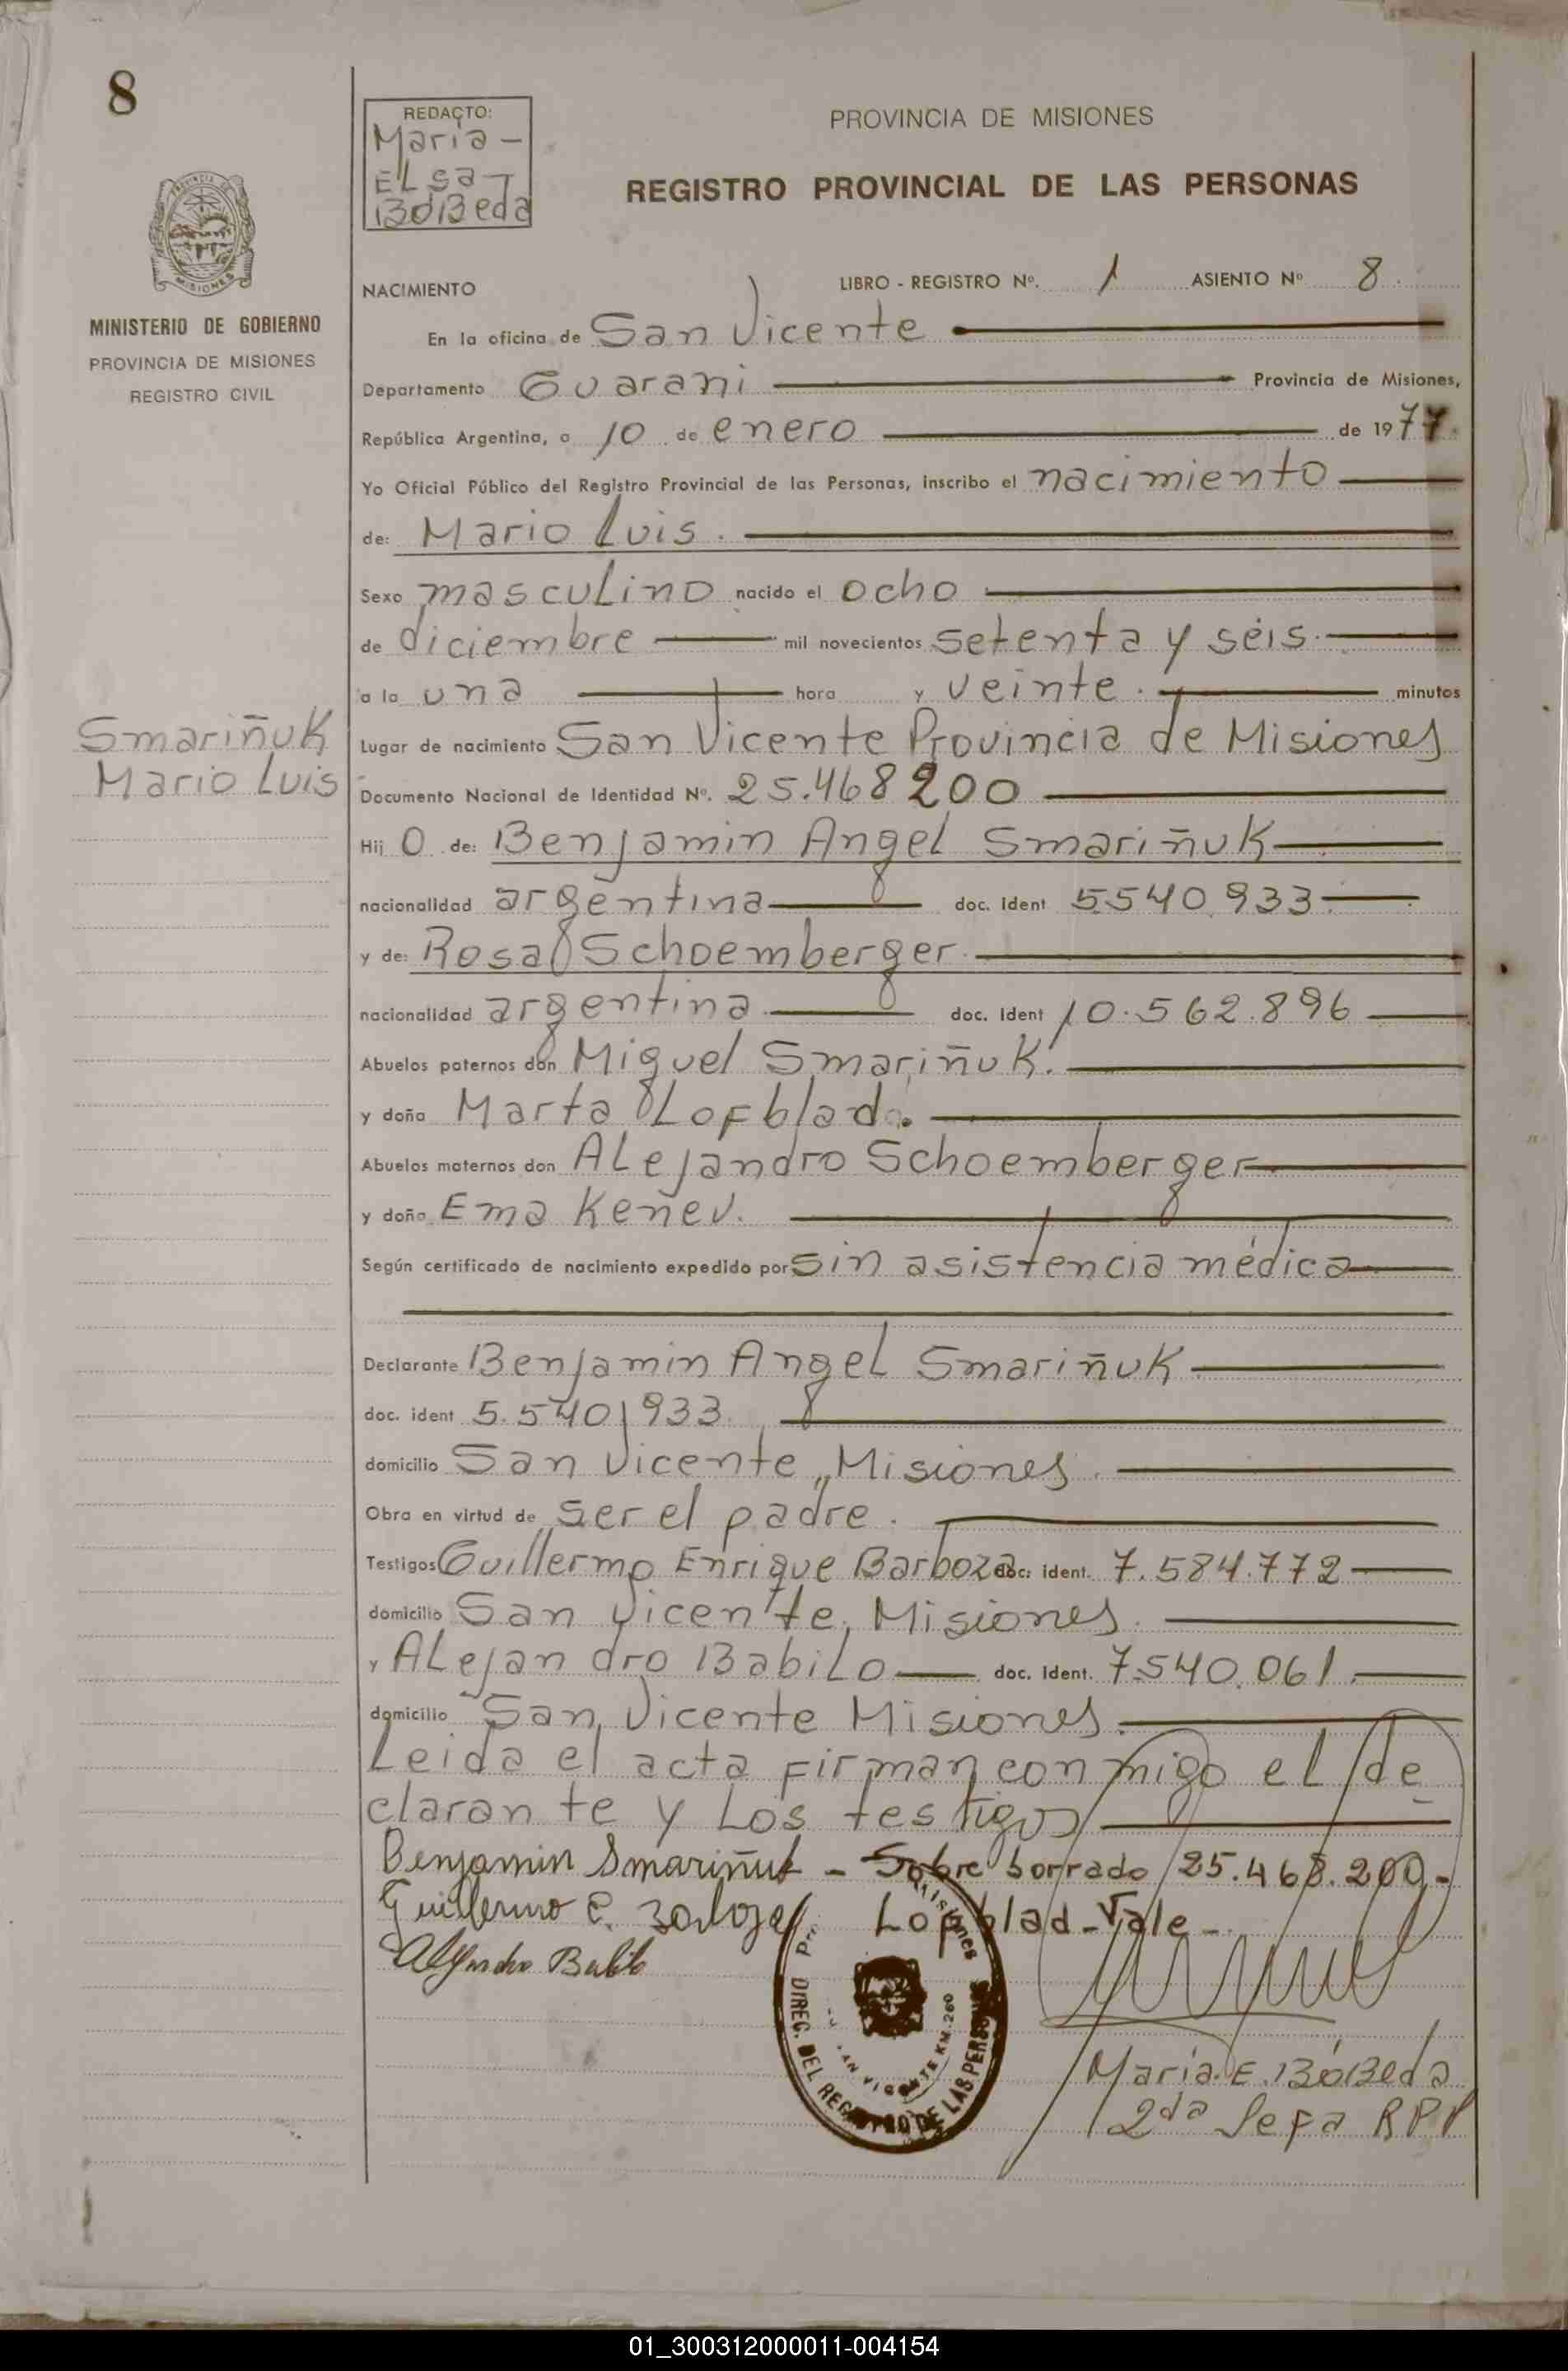 8
REDACTO:
Maria -
ELsa -
BóBeda
PROVINCIA DE MISIONES
REGISTRO PROVINCIAL DE LAS PERSONAS
MISIONES
MINISTERIO DE GOBIERNO
PROVINCIA DE MISIONES
REGISTRO CIVIL
NACIMIENTO LIBRO - REGISTRO Nº. 1 ASIENTO Nº 8.
En la oficina de San Vicente
Departamento Guarani Provincia de Misiones,
República Argentina, a 10 de enero de 1977.
Yo Oficial Público del Registro Provincial de las Personas, inscribo el nacimiento
de: Mario Luis.
Sexo masculino nacido el ocho
de diciembre mil novecientos setenta y séis.
a la una hora y veinte. minutos
Smariñuk
Mario Luis
Lugar de nacimiento San Vicente Provincia de Misiones
Documento Nacional de Identidad Nº. 25.468200
Hij o de: Benjamin Angel Smariñuk
nacionalidad argentina doc. ident 5540.933.
y de: Rosa Schoemberger.
nacionalidad argentina. doc. ident 10.562.896
Abuelos paternos don Miguel Smariñuk.
y doña Marta Lofblad.
Abuelos maternos don ALejandro Schoemberger
y doña Ema Keñev.
Según certificado de nacimiento expedido por sin asistencia médica
Declarante Benjamin Angel Smariñuk
doc. ident 5.540.933.
domicilio San Vicente, Misiones.
Obra en virtud de ser el padre.
Testigos Guillermo Enrique Barboza doc. ident. 7.584.772
domicilio San Vicente, Misiones.
y ALejandro Babilo doc. ident. 7.540.061.
domicilio San Vicente Misiones.
Leida el acta firman conmigo el de
clarante y Los testigos
Benjamin Smariñuk - Sobre borrado 25.468.200.-
Guillermo E. Lofblad - Vale -
Alejandro Babilo
Misiones
DIREC. DEL REGISTRO DE LAS PERSONAS
SAN VICENTE KM. 260
María. E. BóBeda
2da Jefa RPP
01_300312000011-004154